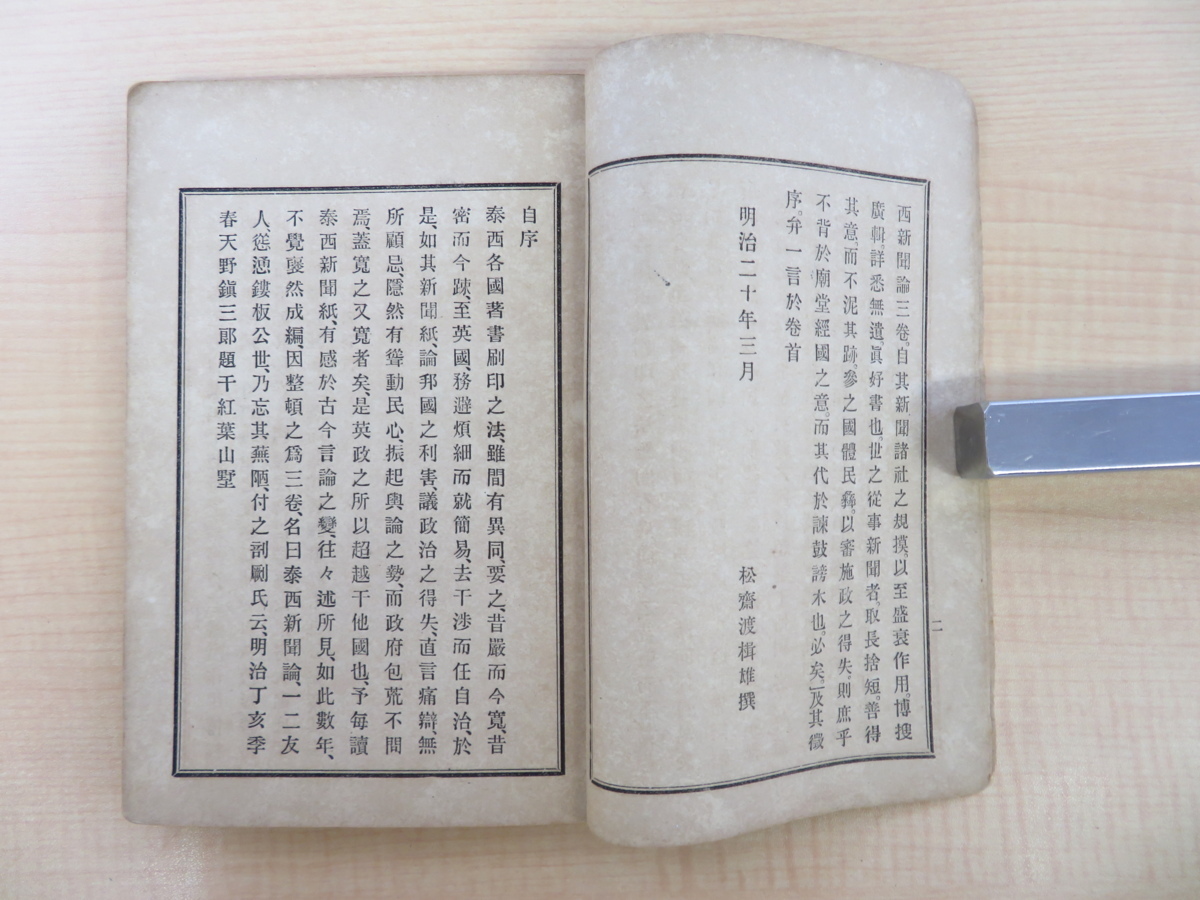 西新聞論三卷。自其新聞諸社之規摸。以至盛衰作用。博搜
廣輯。詳悉無遺。眞好書也。世之從事新聞者。取長捨短。善得
其意。而不泥其跡。參之國體民彝。以審施政之得失。則庶乎
不背於廟堂經國之意。而其代於諫鼓謗木也。必矣。及其徵
序。弁一言於卷首
明治二十年三月
松齋渡楫雄撰
二
自序
泰西各國著書刷印之法、雖間有異同、要之、昔嚴而今寬、昔
密而今踈、至英國、務避煩細而就簡易、去干涉而任自治、於
是、如其新聞紙、論邦國之利害、議政治之得失、直言痛辯、無
所顧忌、隱然有聳動民心、振起輿論之勢、而政府包荒不問
焉、蓋寬之又寬者矣、是英政之所以超越干他國也、予每讀
泰西新聞紙、有感於古今言論之變、往々述所見、如此數年、
不覺裒然成編、因整頓之爲三卷、名曰泰西新聞論、一二友
人、慫慂鏤板公世、乃忘其蕪陋、付之剞劂氏云、明治丁亥季
春天野鎭三郞題干紅葉山墅